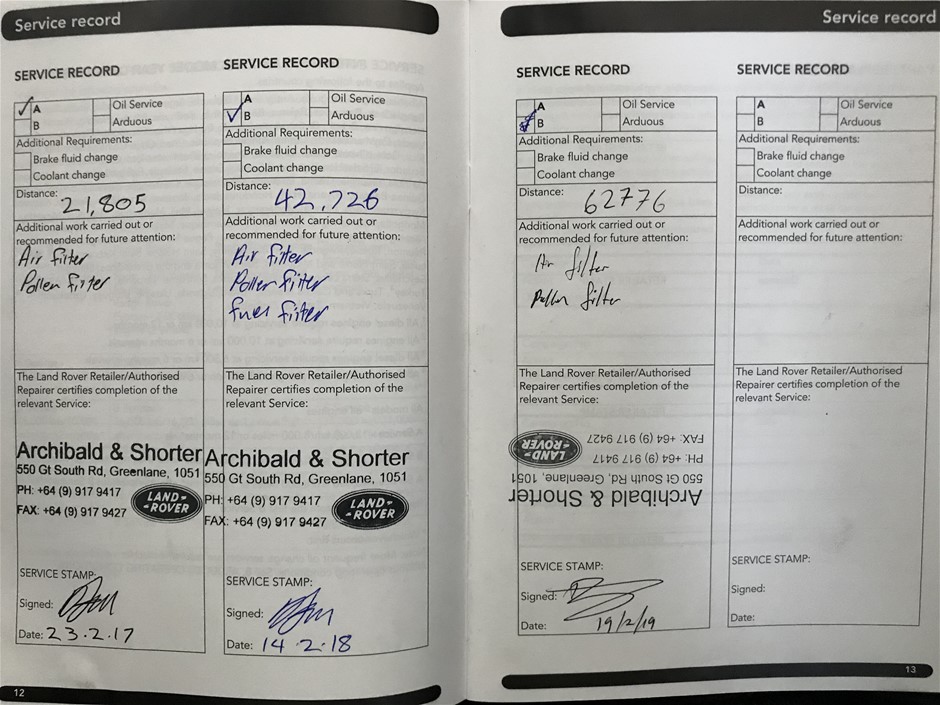 Service record
SERVICE RECORD
A
Oil Service
B
Arduous
Additional Requirements:
Brake fluid change
Coolant change
Distance: 21,805
Additional work carried out or
recommended for future attention:
Air filter
Pollen filter
The Land Rover Retailer/Authorised
Repairer certifies completion of the
relevant Service:
Archibald & Shorter
550 Gt South Rd, Greenlane, 1051
PH: +64 (9) 917 9417
FAX: +64 (9) 917 9427
LAND-
-ROVER
SERVICE STAMP:
Signed:
Date: 23.2.17
12
SERVICE RECORD
A
Oil Service
B
Arduous
Additional Requirements:
Brake fluid change
Coolant change
Distance: 42,726
Additional work carried out or
recommended for future attention:
Air filter
Pollen filter
fuel filter
The Land Rover Retailer/Authorised
Repairer certifies completion of the
relevant Service:
Archibald & Shorter
550 Gt South Rd, Greenlane, 1051
PH: +64 (9) 917 9417
FAX: +64 (9) 917 9427
LAND-
-ROVER
SERVICE STAMP:
Signed:
Date: 14.2.18
Service record
SERVICE RECORD
A
Oil Service
B
Arduous
Additional Requirements:
Brake fluid change
Coolant change
Distance: 62776
Additional work carried out or
recommended for future attention:
Air filter
Pollen filter
The Land Rover Retailer/Authorised
Repairer certifies completion of the
relevant Service:
Archibald & Shorter
550 Gt South Rd, Greenlane, 1051
PH: +64 (9) 917 9417
FAX: +64 (9) 917 9427
LAND-
-ROVER
SERVICE STAMP:
Signed:
Date: 19/2/19
SERVICE RECORD
A
Oil Service
B
Arduous
Additional Requirements:
Brake fluid change
Coolant change
Distance:
Additional work carried out or
recommended for future attention:
The Land Rover Retailer/Authorised
Repairer certifies completion of the
relevant Service:
SERVICE STAMP:
Signed:
Date:
13